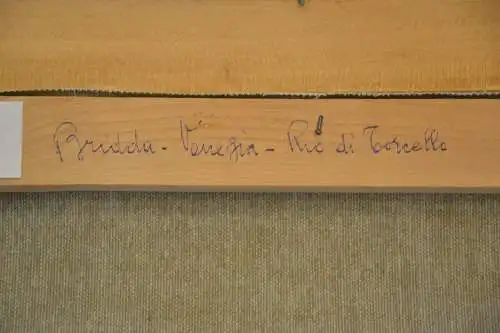 Bridda - Venezia - Rio di Torcello